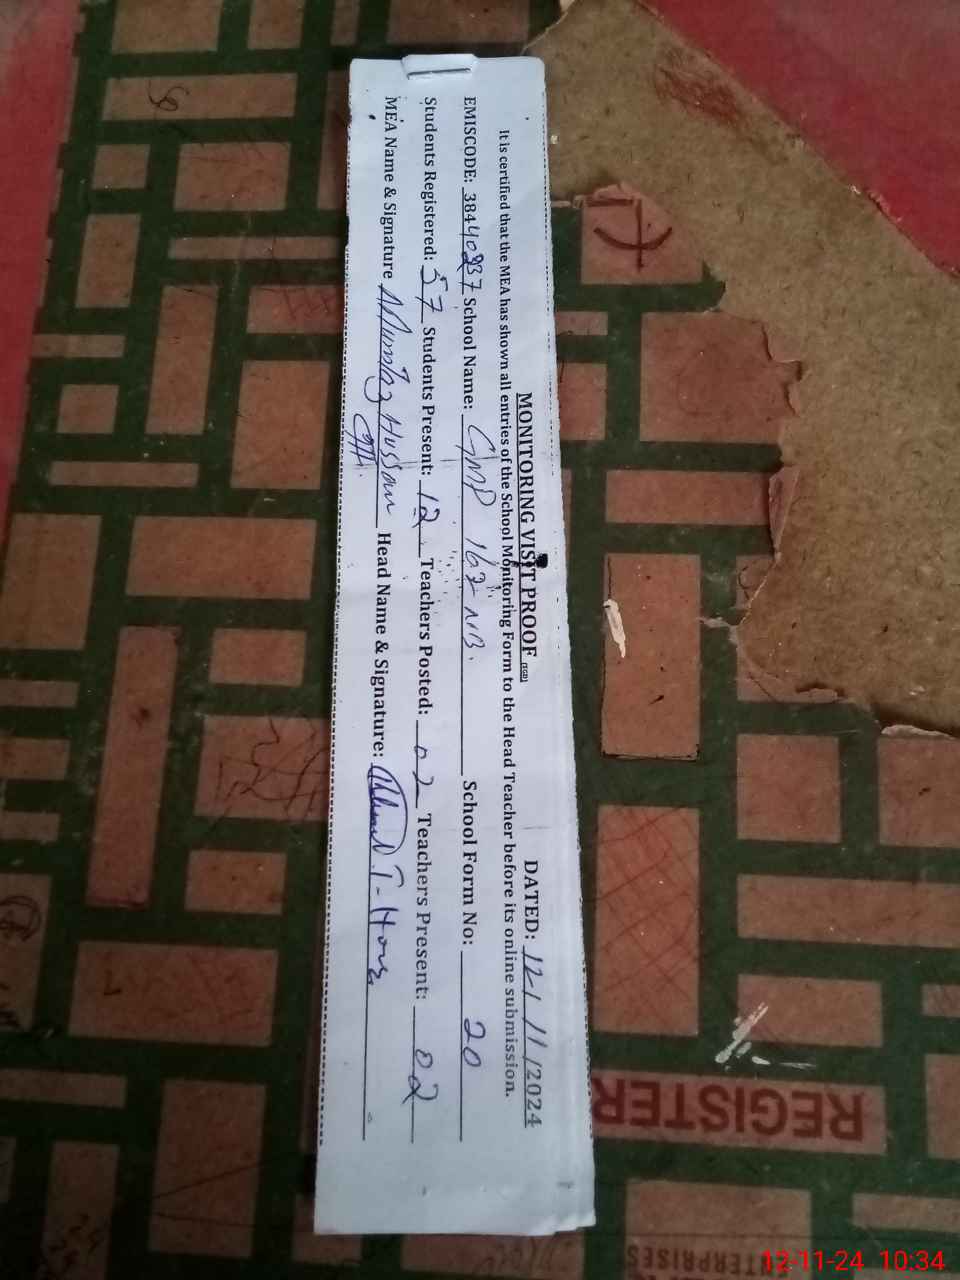 MONITORING VISIT PROOF (SGD) DATED: 12/11/2024
It is certified that the MEA has shown all entries of the School Monitoring Form to the Head Teacher before its online submission.
EMISCODE: 38440237 School Name: GMP 162 NB. School Form No: 20
Students Registered: 57 Students Present: 12 Teachers Posted: 02 Teachers Present: 02
MEA Name & Signature Mumtaz Hussan Head Name & Signature:
REGISTER
ENTERPRISES
12-11-24 10:34